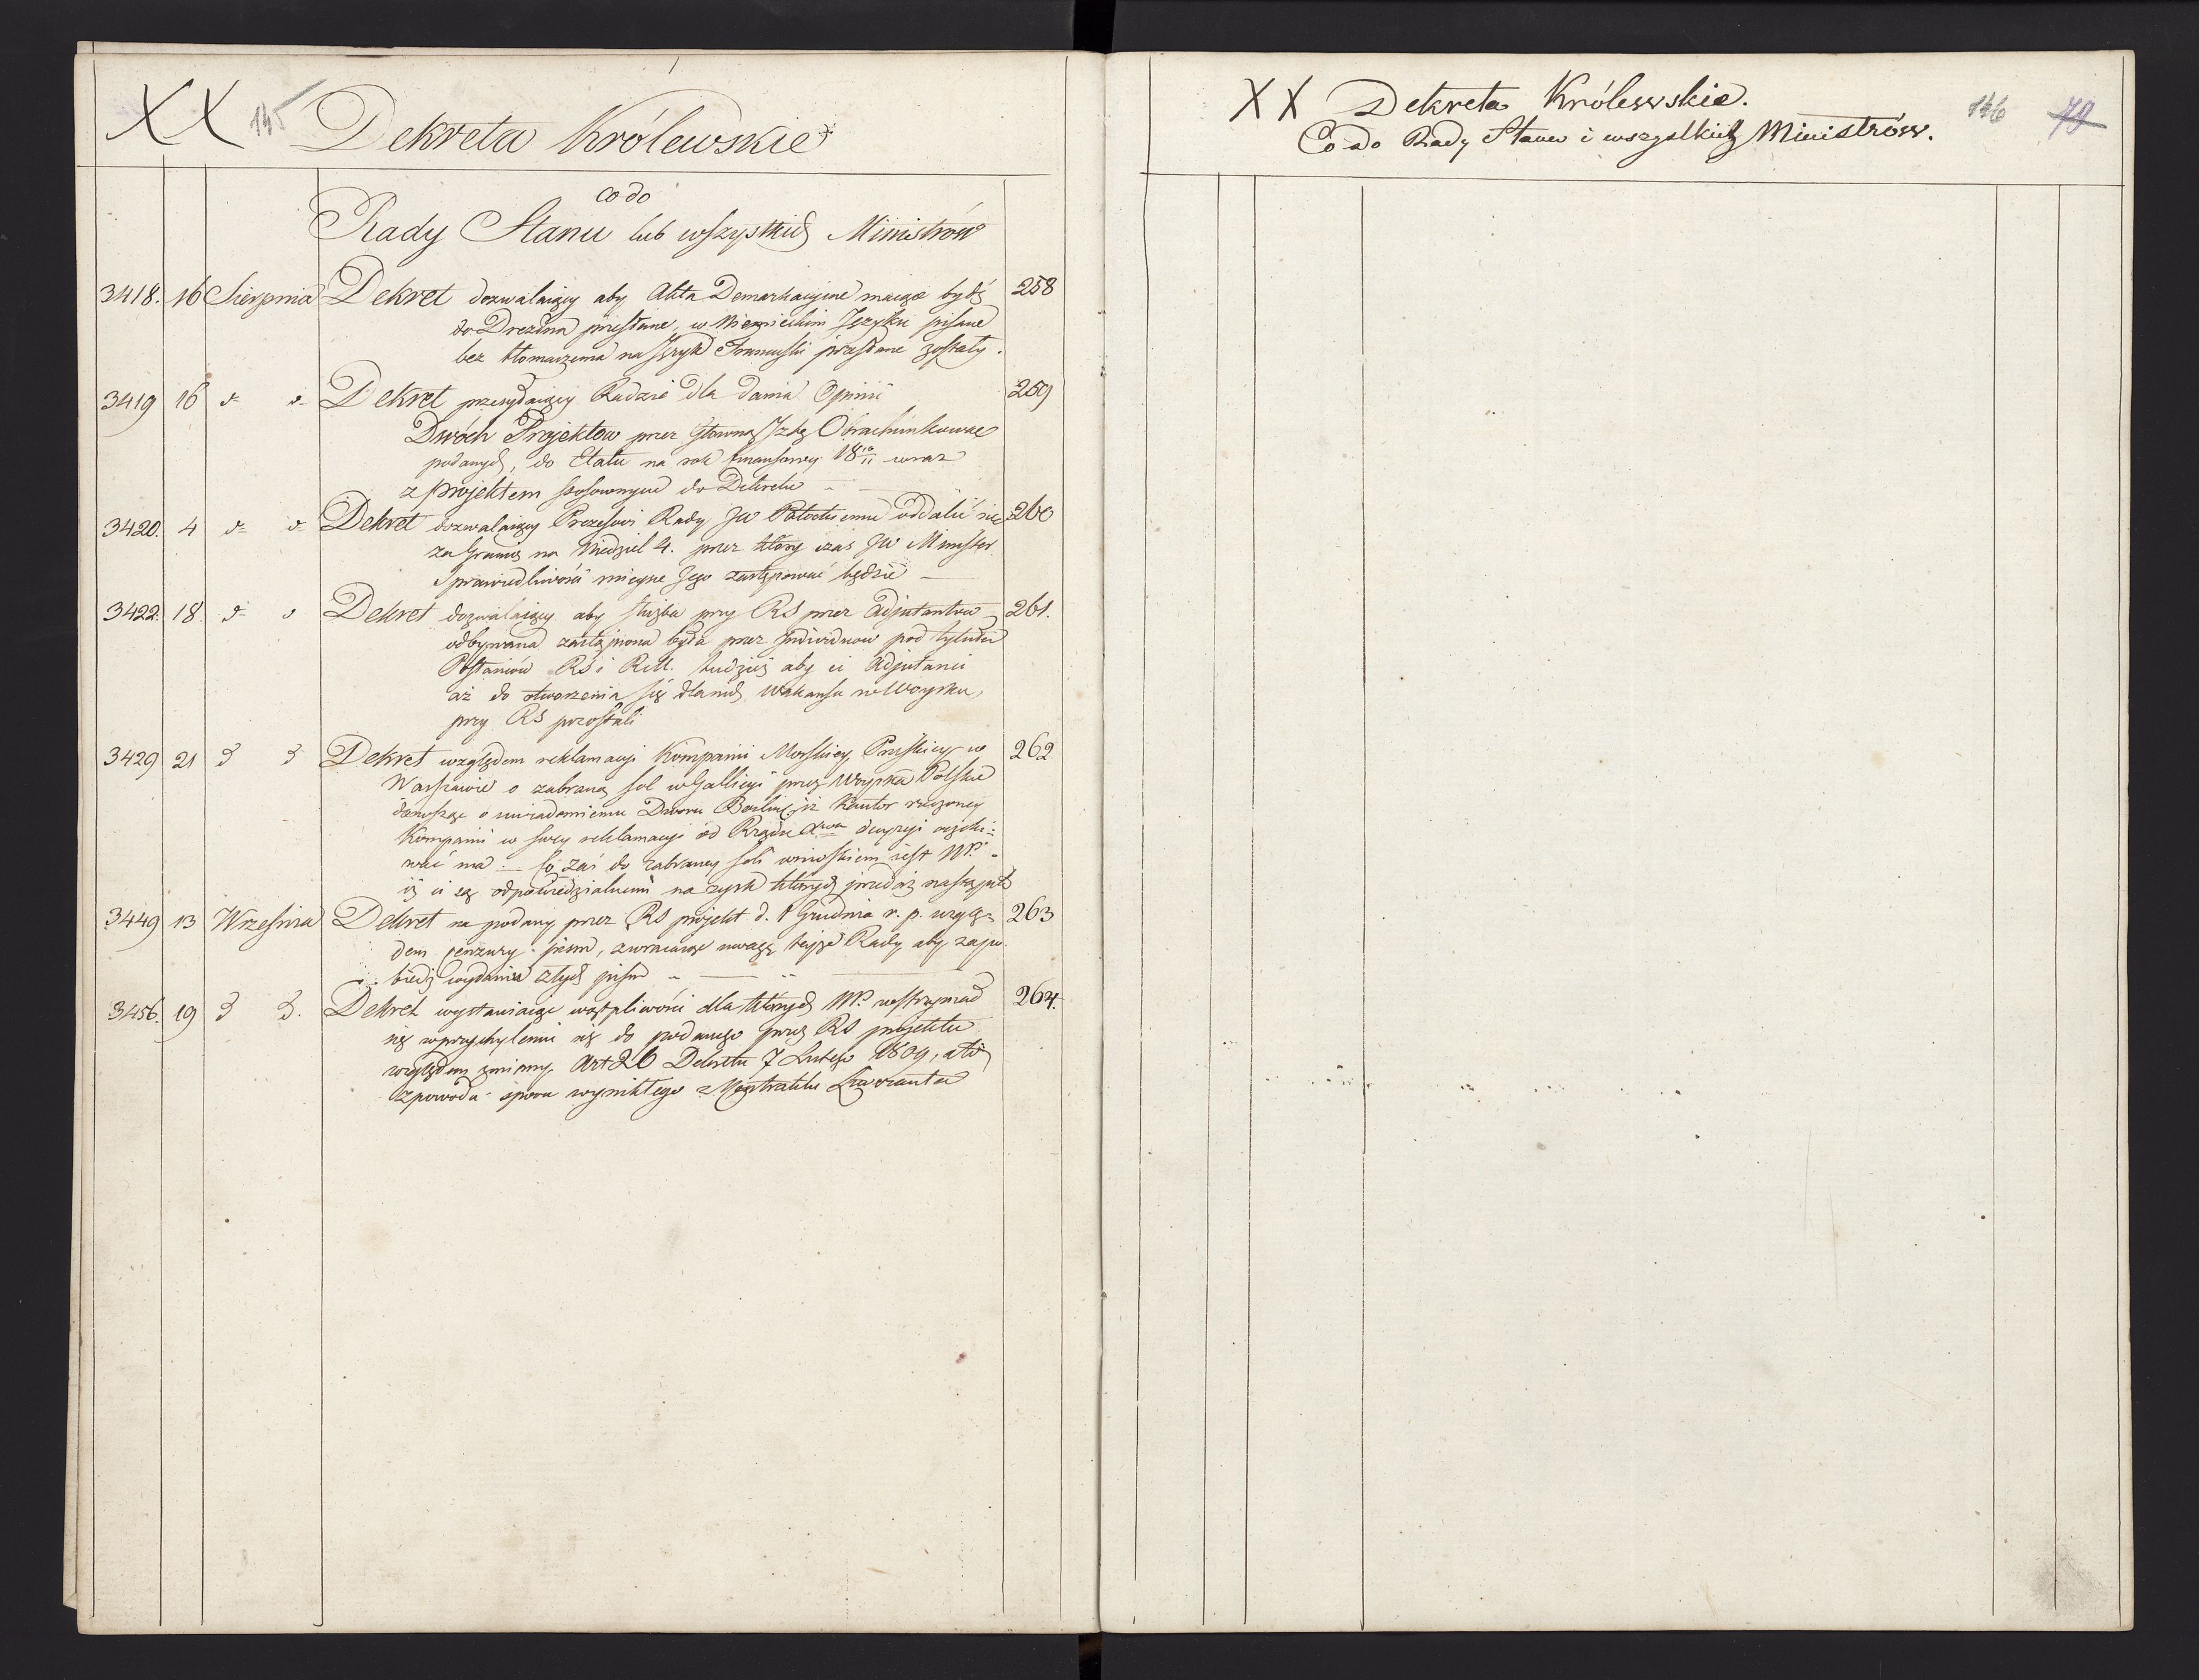 XX 145 Dekreta Królewskie
co do
Rady Stanu lub wszystkich Ministrów
3418. 16 Sierpnia Dekret dozwalaiący aby Akta Demarkacyine maiące bydź 258
do Drezdna przesłane, w Niemieckim Języku pisane
bez tłomaczenia na Język Francuski przesłane zostały.
3419 16 d= d= Dekret przesyłaiący Radzie dla dania Opinii 259
Dwóch Projektow przez Głowną Izbę Obrachunkową
podanych, do Etatu na rok finansowy 18 10/11 wraz
z projektem stosownym do Dekretu
3420. 4 d= d= Dekret dozwalaiący Prezesowi Rady JW Potockiemu oddalić się 260
za Granicę na Niedziel 4. przez który czas JW Minister
Sprawiedliwości mieysce Jego zastępować będzie
3422. 18. d= d Dekret dozwalaiący aby służba przy RS przez Adjutantow 261.
odbywana zastąpiona była przez Individuow pod tytułem
Posłańców RS i RM. tudzież aby ci Adjutanci
aż do otworzenia się dla nich wakansu w Woysku,
przy RS pozostali
3429 21 d d Dekret względem reklamacyi Kompanii Morskiey Pruskiey w 262
Warszawie o zabraną sol w Gallicyi przez Woyska Polskie
donosząc o uwiadomieniu Dworu Berliń: iż Kantor rzeczoney
Kompanii w swey reklamacyi od Rządu Xtwa decyzyi oczeki=
wać ma. Co zaś do zabraney soli wnioskiem iest NP.
iż ci są odpowiedzialnemi na zysk których przedaż nastąpiła
3449 13 Września Dekret na podany przez RS projekt d. 1 Grudnia r. p. wzglę= 263
dem cenzury pism, zwracaiące uwagę teyże Rady aby zapo
biedz wydaniu złych pism
3456. 19 d d. Dekret wystawiaiące wątpliwości dla których NP. wstrzymał 264.
się w przychyleniu się do podanego przez RS projektu
względem zmiany Art 26 Dekretu 7 Lutego 1809, a to
z powodu sporu wynikłego z
XX Dekreta Królewskie. 146 79
Co do Rady Stanu i wszystkich Ministrów.